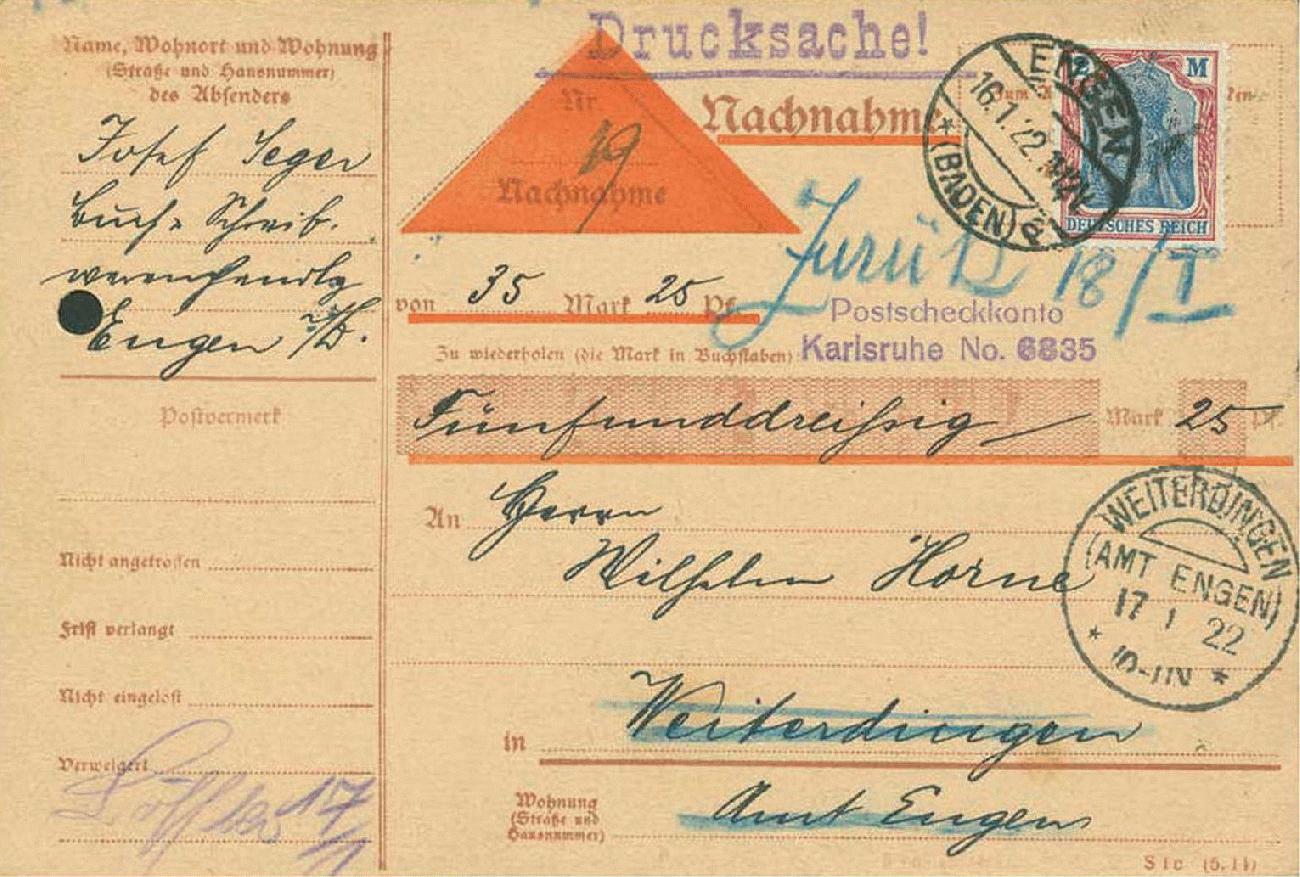 Name, Wohnort und Wohnung
(Straße und Hausnummer)
des Absenders
Josef Seger
Buch- Schreib-
warenhandlg
Engen i/B.
Postvermerk
Nicht angetroffen
Frist verlangt
Nicht eingelöst
Verweigert
17/1
Drucksache!
Nr.
19
Nachnahme
Nachnahme
ENGEN
16.1.22.
(BADEN)
2 M
DEUTSCHES REICH
Zurück 18/I
von 35 Mark 25 Pf.
Postscheckkonto
Karlsruhe No. 6835
Zu wiederholen (die Mark in Buchstaben)
Fünfunddreißig Mark 25 Pf.
An Herrn
Wilhelm Horne
WEITERDINGEN
(AMT ENGEN)
17 1 22
10-11N
in Weiterdingen
Wohnung
(Straße und
Hausnummer)
Amt Engen
C 1c (5.11)